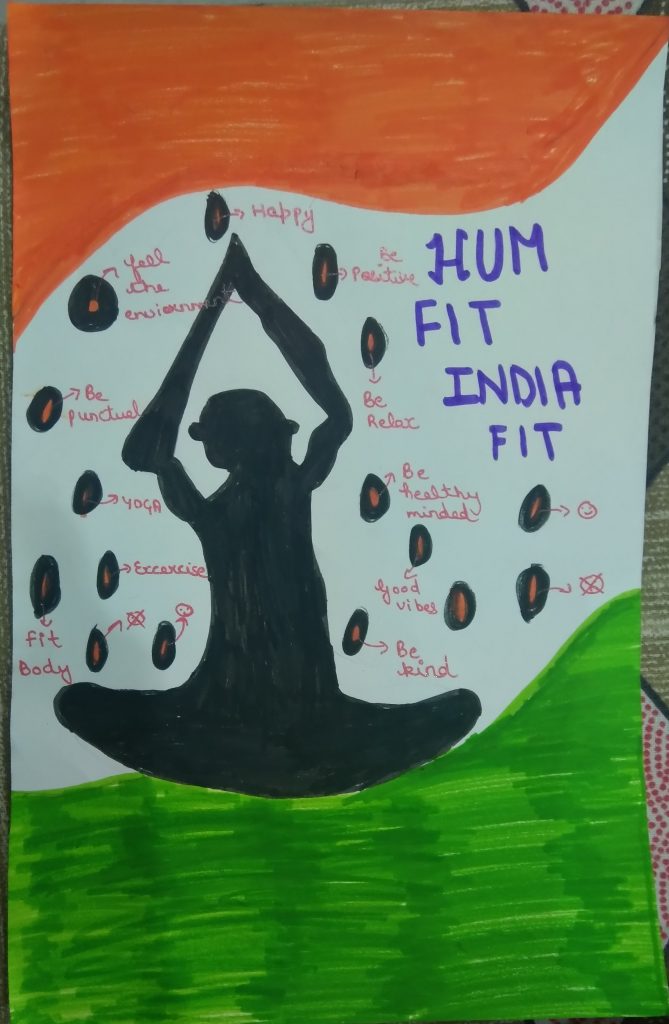 Happy
Be
Positive
HUM
FIT
INDIA
FIT
feel
the
enviornment
Be
punctual
Be
Relax
YOGA
Be
healthy
minded
Excercise
Good
vibes
Fit
Body
Be
kind